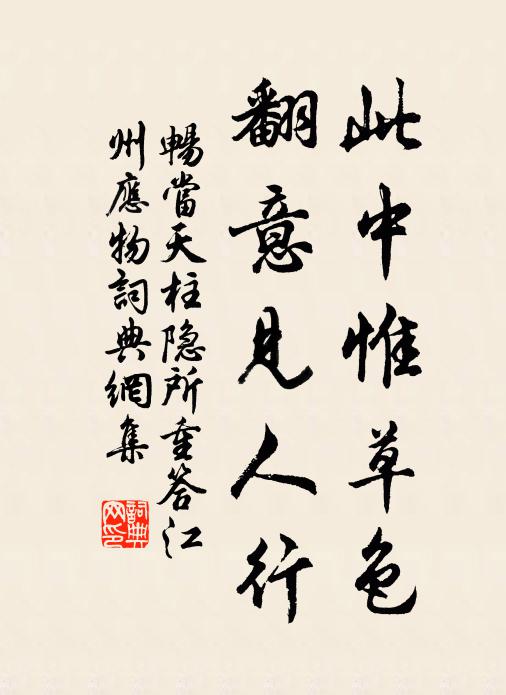 此中惟草色
翻意見人行
暢當天柱隐所重答江
州應物詞典網集
詞典
网印